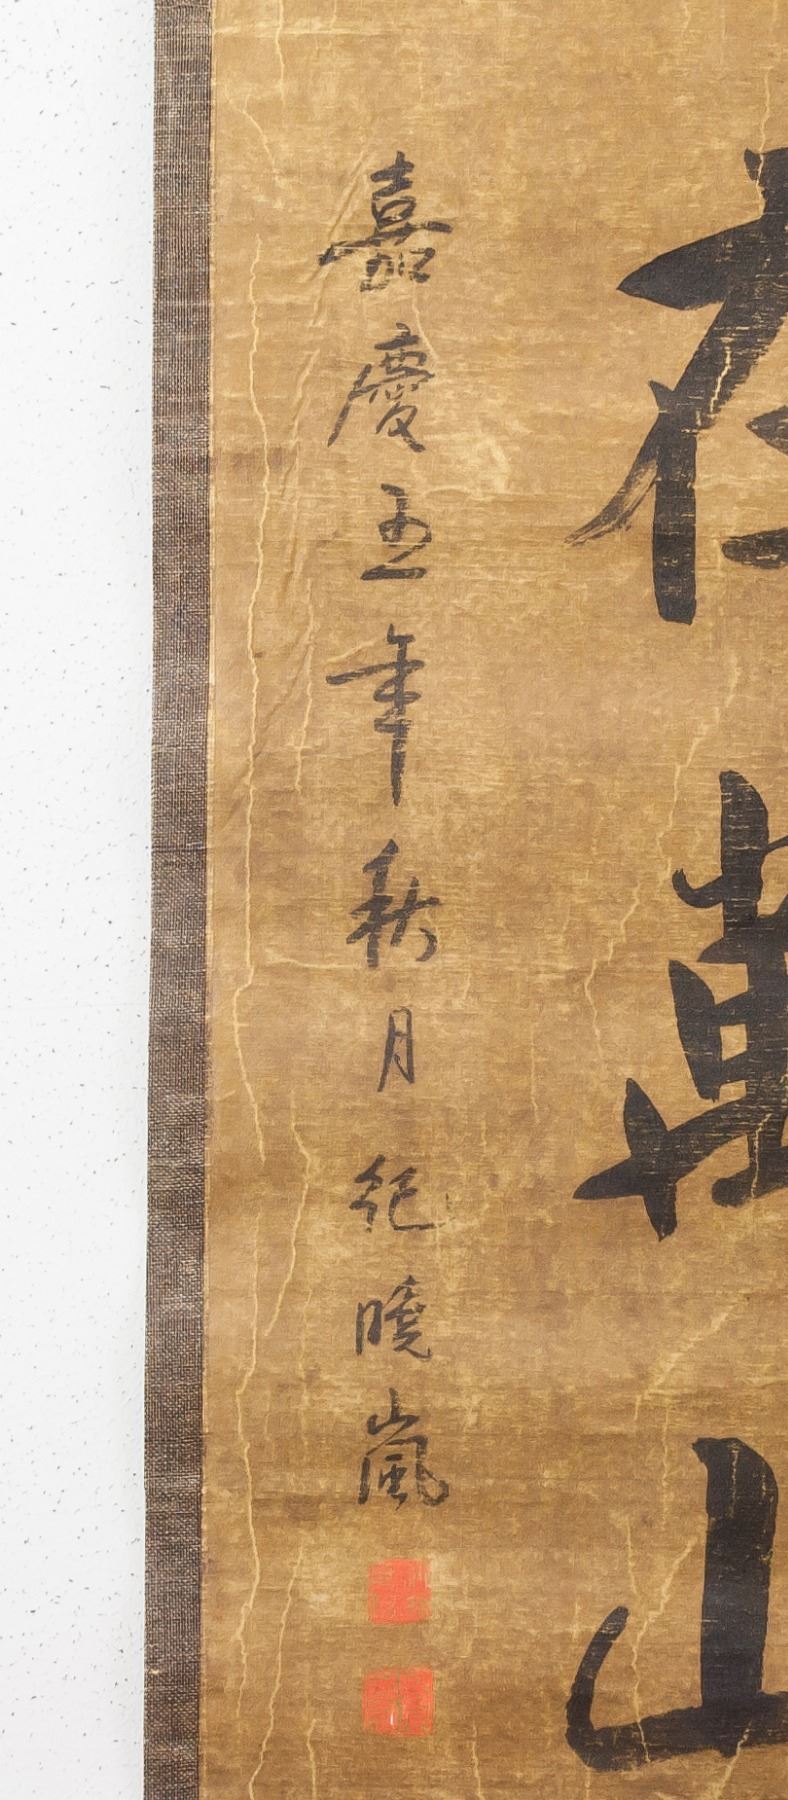 在萬山
嘉慶五年秋月紀曉嵐